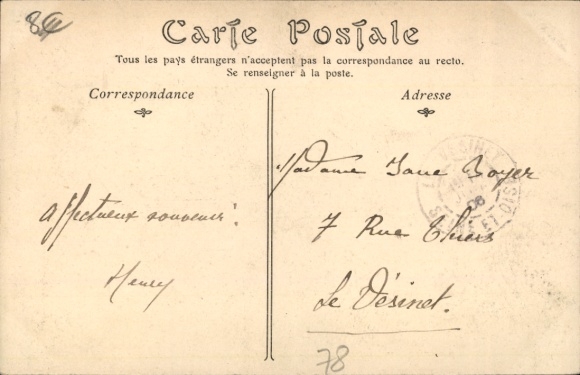 Carte Postale
Tous les pays étrangers n'acceptent pas la correspondance au recto.
Se renseigner à la poste.
Correspondance
Adresse
affectueux souvenir!
Henry
Madame Jane Boyer
7 Rue Thiers
Le Vésinet.
78